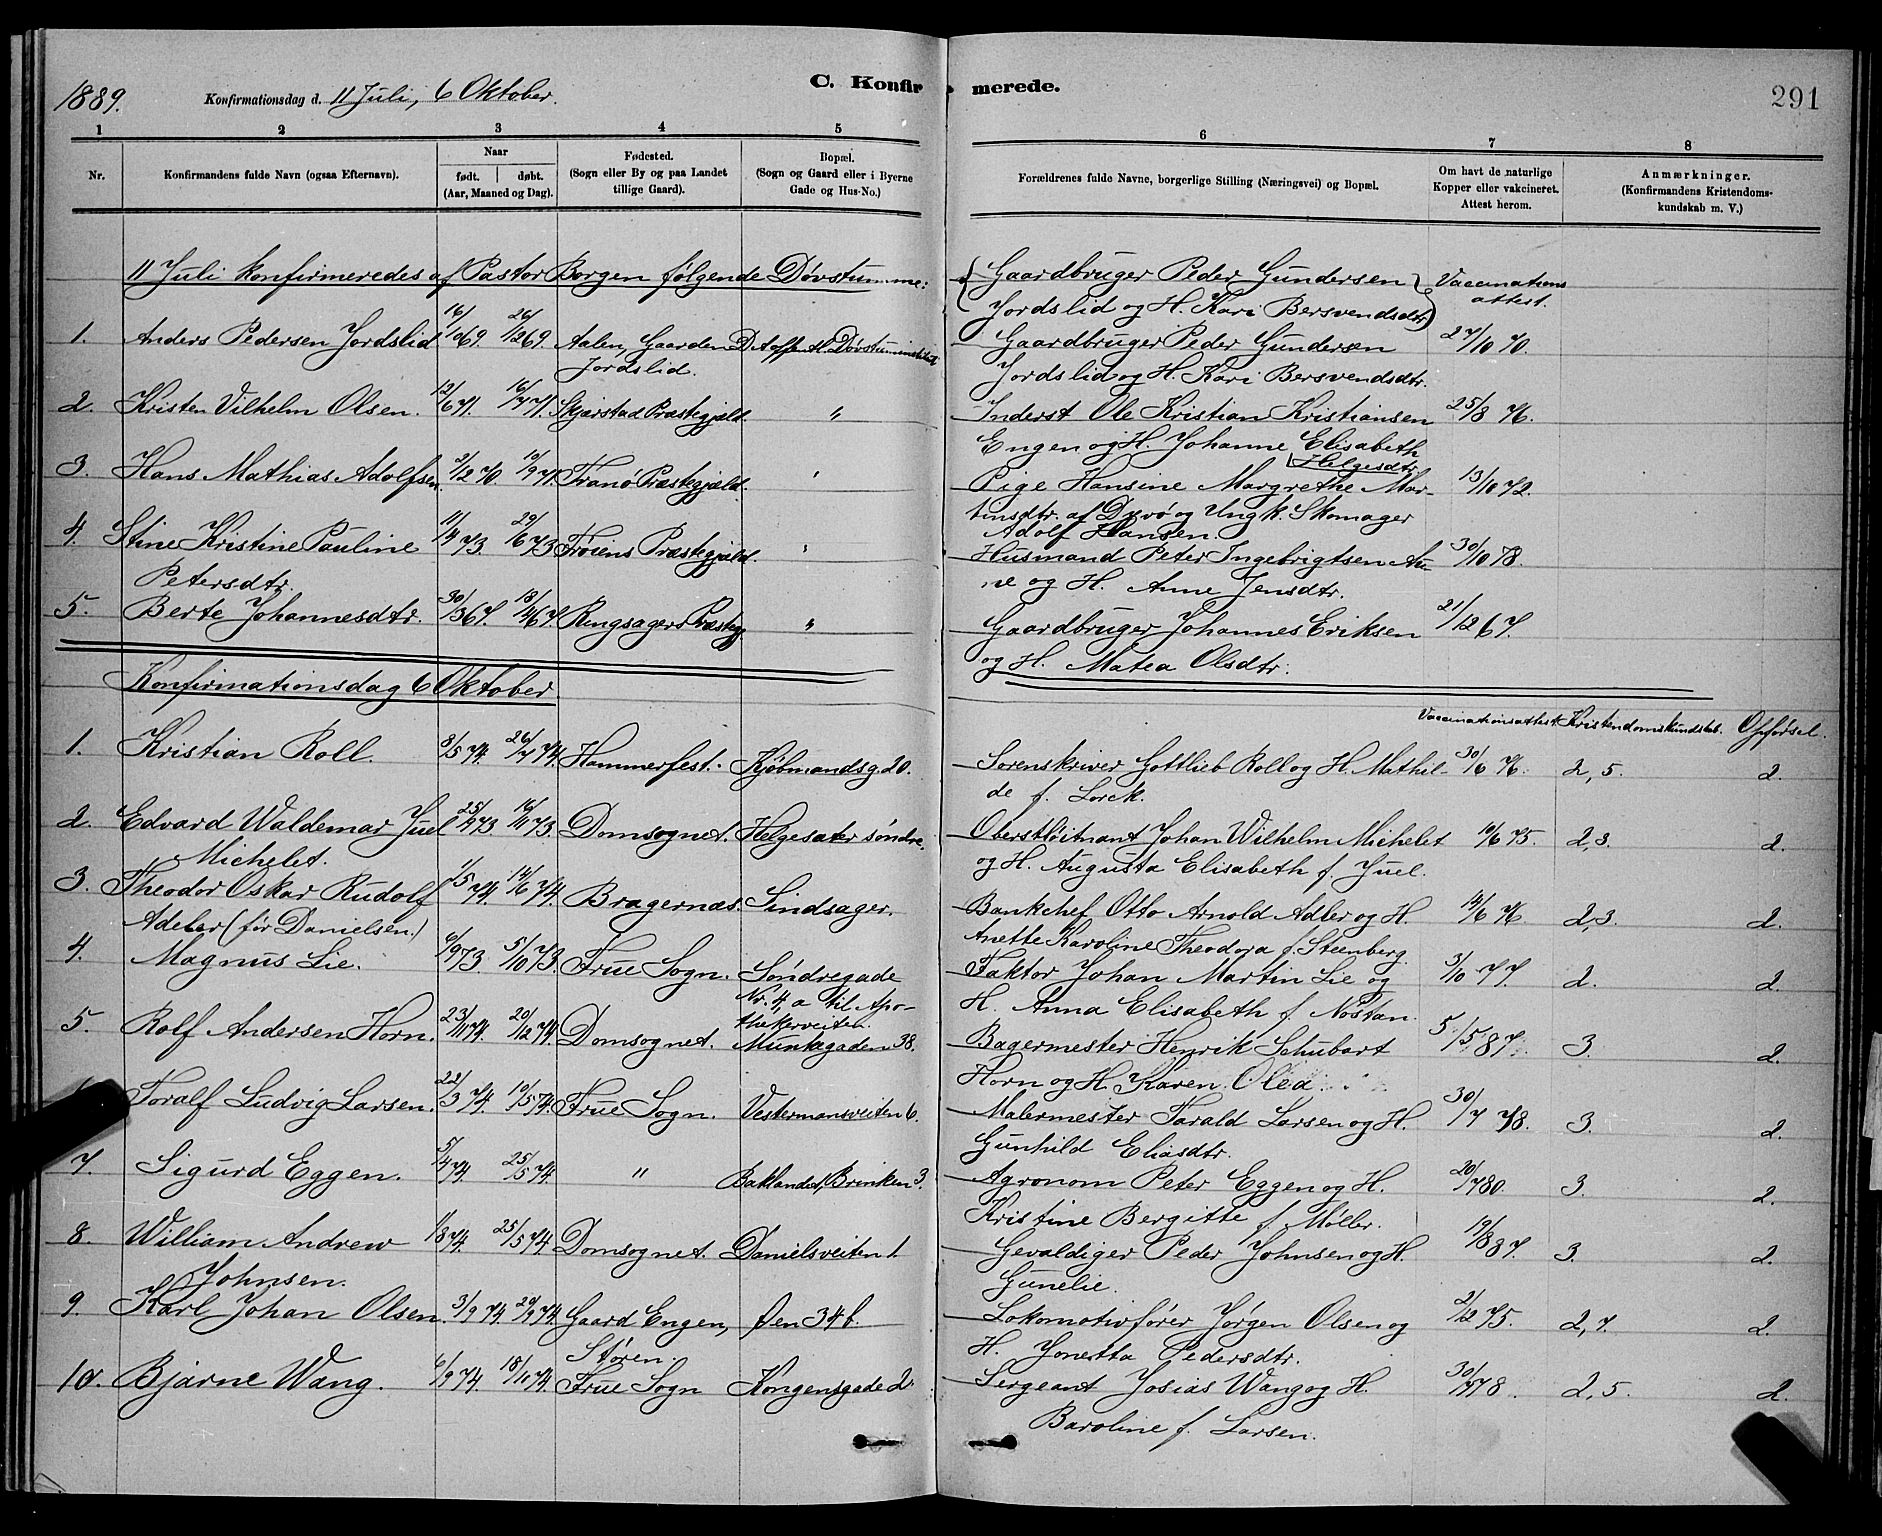 1889. Konfirmationsdag d. 11 Juli, 6 Oktober.
C. Konfirmerede.
291
1 2 3 4 5 6 7 8
Nr.
Konfirmandens fulde Navn (ogsaa Efternavn).
Naar
født. døbt.
(Aar, Maaned og Dag).
Fødested.
(Sogn eller By og paa Landet
tillige Gaard).
Bopæl.
(Sogn og Gaard eller i Byerne
Gade og Hus-No.)
Forældrenes fulde Navne, borgerlige Stilling (Næringsvei) og Bopæl.
Om havt de naturlige
Kopper eller vakcineret.
Attest herom.
Anmærkninger.
(Konfirmandens Kristendoms-
kundskab m. V.)
11 Juli konfirmeredes af Pastor Borgen følgende Døvstumme:
(Gaardbruger Peder Gundersen
Jordslid og H. Kari Bersvendsdtr)
Vaccinations
attest.
1. Anders Pedersen Jordslid 16/10 69. 26/12 69. Aalen, Gaarden
Jordslid.
Gaardbruger Peder Gundersen 27/10 70.
Jordslid og H. Kari Bersvendsdtr.
2. Kristen Vilhelm Olsen. 12/6 71. 16/7 71. Skjerstad Præstegjæld. "
Inderst Ole Kristian Kristiansen 25/8 76.
Engen og H. Johanne Elisabeth
Helgesdtr.
3. Hans Mathias Adolfsen. 2/12 70. 19/9 71. Tranø Præstegjæld. "
Pige Hansine Margrethe Mar- 13/10 72.
tinsdtr. af Dyrø og Ungk. Skomager
Adolf Hansen.
4. Stine Kristine Pauline 11/4 73. 29/6 73 Frøiens Præstegjæld. "
Petersdtr.
Husmand Peter Ingebrigtsen Au- 30/10 78.
ne og H. Anne Jensdtr.
5. Berte Johannesdtr. 30/3 67. 18/4 67. Ringsager Præstegj "
Gaardbruger Johannes Eriksen 21/12 67.
og H. Matea Olsdtr.
Konfirmationsdag 6 Oktober
Vaccinationsattest. Kristendomskundskab. Opførsel.
1. Kristian Roll. 8/5 74. 26/7 74. Hammerfest. Kjøbmandsg. 20.
Sorenskriver Gottlieb Roll og H. Mathil- 30/6 76. 2,5. 2.
de f. Lorck.
2. Edvard Waldemar Juel 25/9 73 16/11 73. Domsognet. Helgesæter søndre.
Michelet.
Oberstløitnant Johan Wilhelm Michelet 10/6 75. 2,3. 2.
og H. Augusta Elisabeth f. Juel.
3. Theodor Oskar Rudolf 1/5 74. 14/6 74. Bragernæs. Sindsager.
Adeler (før Danielsen.)
Bankchef Otto Arnold Adler og H. 14/6 76. 2,3. 2.
Anette Karoline Theodora f. Steenberg.
4. Magnus Lie. 6/9 73. 5/10 73. Frue Sogn. Søndregade
Nr. 4, a til Apo-
thekerveiten.
Faktor Johan Martin Lie og 3/10 77. 2. 2.
H. Anna Elisabeth f. Nøstan.
5. Rolf Andersen Horn. 23/11 74. 20/12 74. Domsognet. Munkegaden 38.
Bagermester Henrik Schubart 5/5 87. 3. 2.
Horn og H. Karen Olea.
Toralf Ludvig Larsen. 22/3 74. 10/5 74. Frue Sogn. Vestermansveiten 6.
Malermester Tarald Larsen og H. 30/7 78. 3. 2.
Gunhild Eliasdtr.
7. Sigurd Eggen. 5/4 74. 25/5 74. " Baklandet, Brinken 3.
Agronom Peter Eggen og H. 20/7 80. 3. 2.
Kristine Bergitte f. Møller.
8. William Andrew 1/3 74. 25/5 74 Domsognet. Danielsveiten 1.
Johnsen.
Gevaldiger Peder Johnsen og H. 19/8 87. 3. 2.
Gunelie.
9. Karl Johan Olsen. 3/9 74. 20/9 74. Gaard Engen, Øen 34 b.
Støren.
Lokomotivfører Jørgen Olsen og 2/12 75. 2,7. 2.
H. Jonetta Pedersdtr.
10. Bjarne Wang. 6/9 74. 18/11 74. Frue Sogn Kongensgade 2
Sergeant Josias Wang og H. 30/7 78. 2,5. 2.
Baroline f. Larsen.